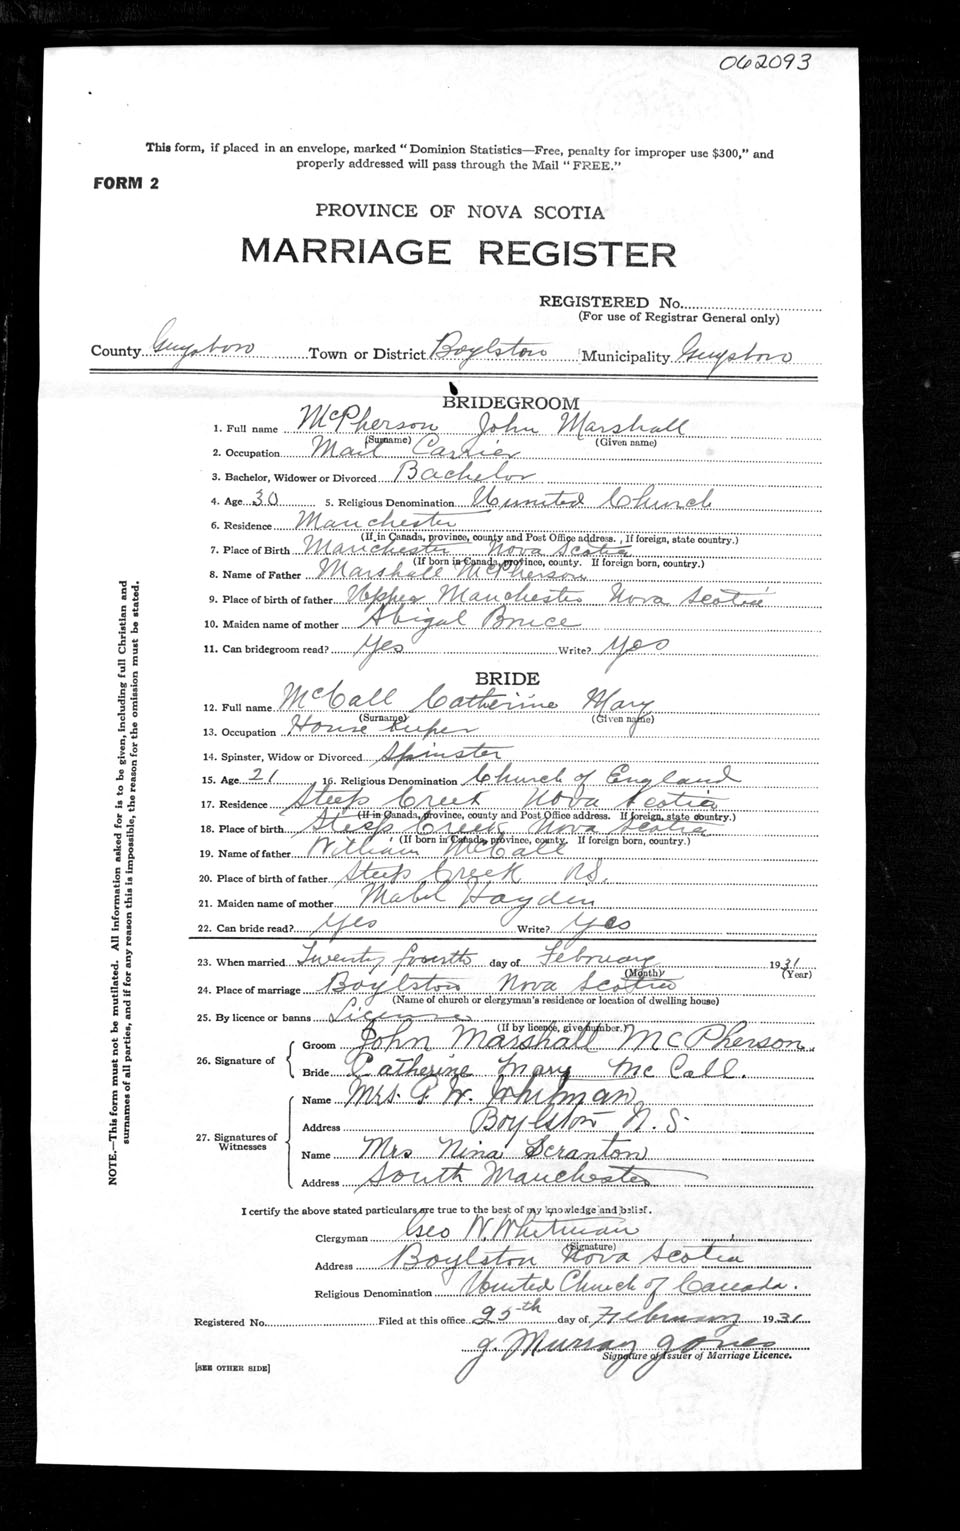 062093
This form, if placed in an envelope, marked "Dominion Statistics—Free, penalty for improper use $300," and
properly addressed will pass through the Mail "FREE."
FORM 2
PROVINCE OF NOVA SCOTIA
MARRIAGE REGISTER
REGISTERED No.
(For use of Registrar General only)
County Guysboro Town or District Boylston Municipality Guysboro
BRIDEGROOM
1. Full name McPherson John Marshall
(Surname) (Given name)
2. Occupation Mail Carrier
3. Bachelor, Widower or Divorced Bachelor
4. Age 30 5. Religious Denomination United Church
6. Residence Manchester
(If in Canada, province, county and Post Office address. If foreign, state country.)
7. Place of Birth Manchester Nova Scotia
(If born in Canada, province, county. If foreign born, country.)
8. Name of Father Marshall McPherson
9. Place of birth of father Upper Manchester Nova Scotia
10. Maiden name of mother Abigal Bruce
11. Can bridegroom read? Yes Write? Yes
BRIDE
12. Full name McCall Catherine Mary
(Surname) (Given name)
13. Occupation House Keeper
14. Spinster, Widow or Divorced Spinster
15. Age 21 16. Religious Denomination Church of England
17. Residence Steep Creek Nova Scotia
(If in Canada, province, county and Post Office address. If foreign, state country.)
18. Place of birth Steep Creek Nova Scotia
(If born in Canada, province, county. If foreign born, country.)
19. Name of father William McCall
20. Place of birth of father Steep Creek N.S.
21. Maiden name of mother Mabel Hayden
22. Can bride read? Yes Write? Yes
23. When married Twenty fourth day of February 1931
(Month) (Year)
24. Place of marriage Boylston Nova Scotia
(Name of church or clergyman's residence or location of dwelling house)
25. By licence or banns License
(If by licence, give number.)
26. Signature of
Groom John Marshall McPherson.
Bride Catherine Mary McCall.
27. Signatures of Witnesses
Name Mrs. G. W. Whitman
Address Boylston N.S.
Name Mrs Nina Scranton
Address South Manchester
I certify the above stated particulars are true to the best of my knowledge and belief.
Clergyman Geo W. Whitman
(Signature)
Address Boylston Nova Scotia
Religious Denomination United Church of Canada.
Registered No. Filed at this office 25th day of February 1931
J. Murray Jones
Signature of Issuer of Marriage Licence.
[SEE OTHER SIDE]
NOTE.—This form must not be mutilated. All information asked for is to be given, including full Christian and
surnames of all parties, and if for any reason this is impossible, the reason for the omission must be stated.